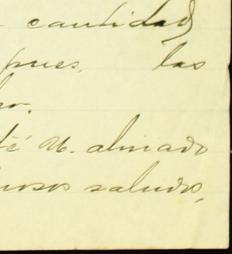 cantidad,
pues, las
té U. aliviado
saludos,